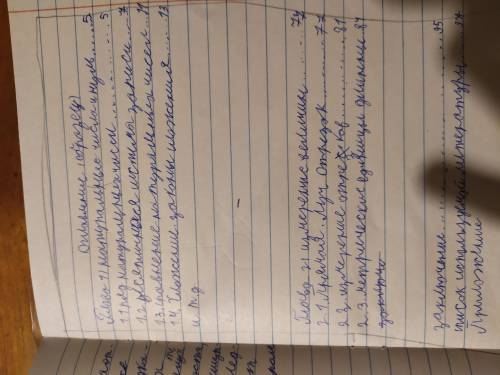 Оглавление (образец)
Глава 1) натуральные числа и нуль.....5
1.1 ряд натуральных чисел..........5
1.2 десятичная система записи.....7
1.3. сравнение натуральных чисел..11
1.4. Сложение законы сложения....13
и т.д
Глава 2) измерение величины......74
2.1. Прямая. Луч отрезок........77
2.2. измерение отрезков..........81
2.3. метрические единицы длины 84
заключение.....................95
писок используемой литературы....97
Приложение